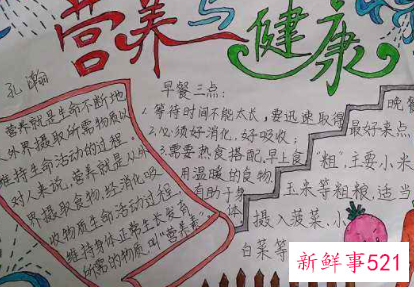 营养与健康
孔瀚
营养就是生命不断地
从外界摄取所需物质以
维持生命活动的过程。
对人来说,营养就是从外
界摄取食物,经消化吸
收物质生命活动过程,
维持身体正常生长发育
所需的物质叫“营养素”
早餐三点:
1.等待时间不能太长,要迅速取得
2.必须好消化、好吸收;
3.需要热食搭配,早上食
用温暖的食物
有助于身
体
晚餐
最好来点
“粗”,主要小米
玉米等粗粮,适当
摄入菠菜,小
白菜等
新鲜事521